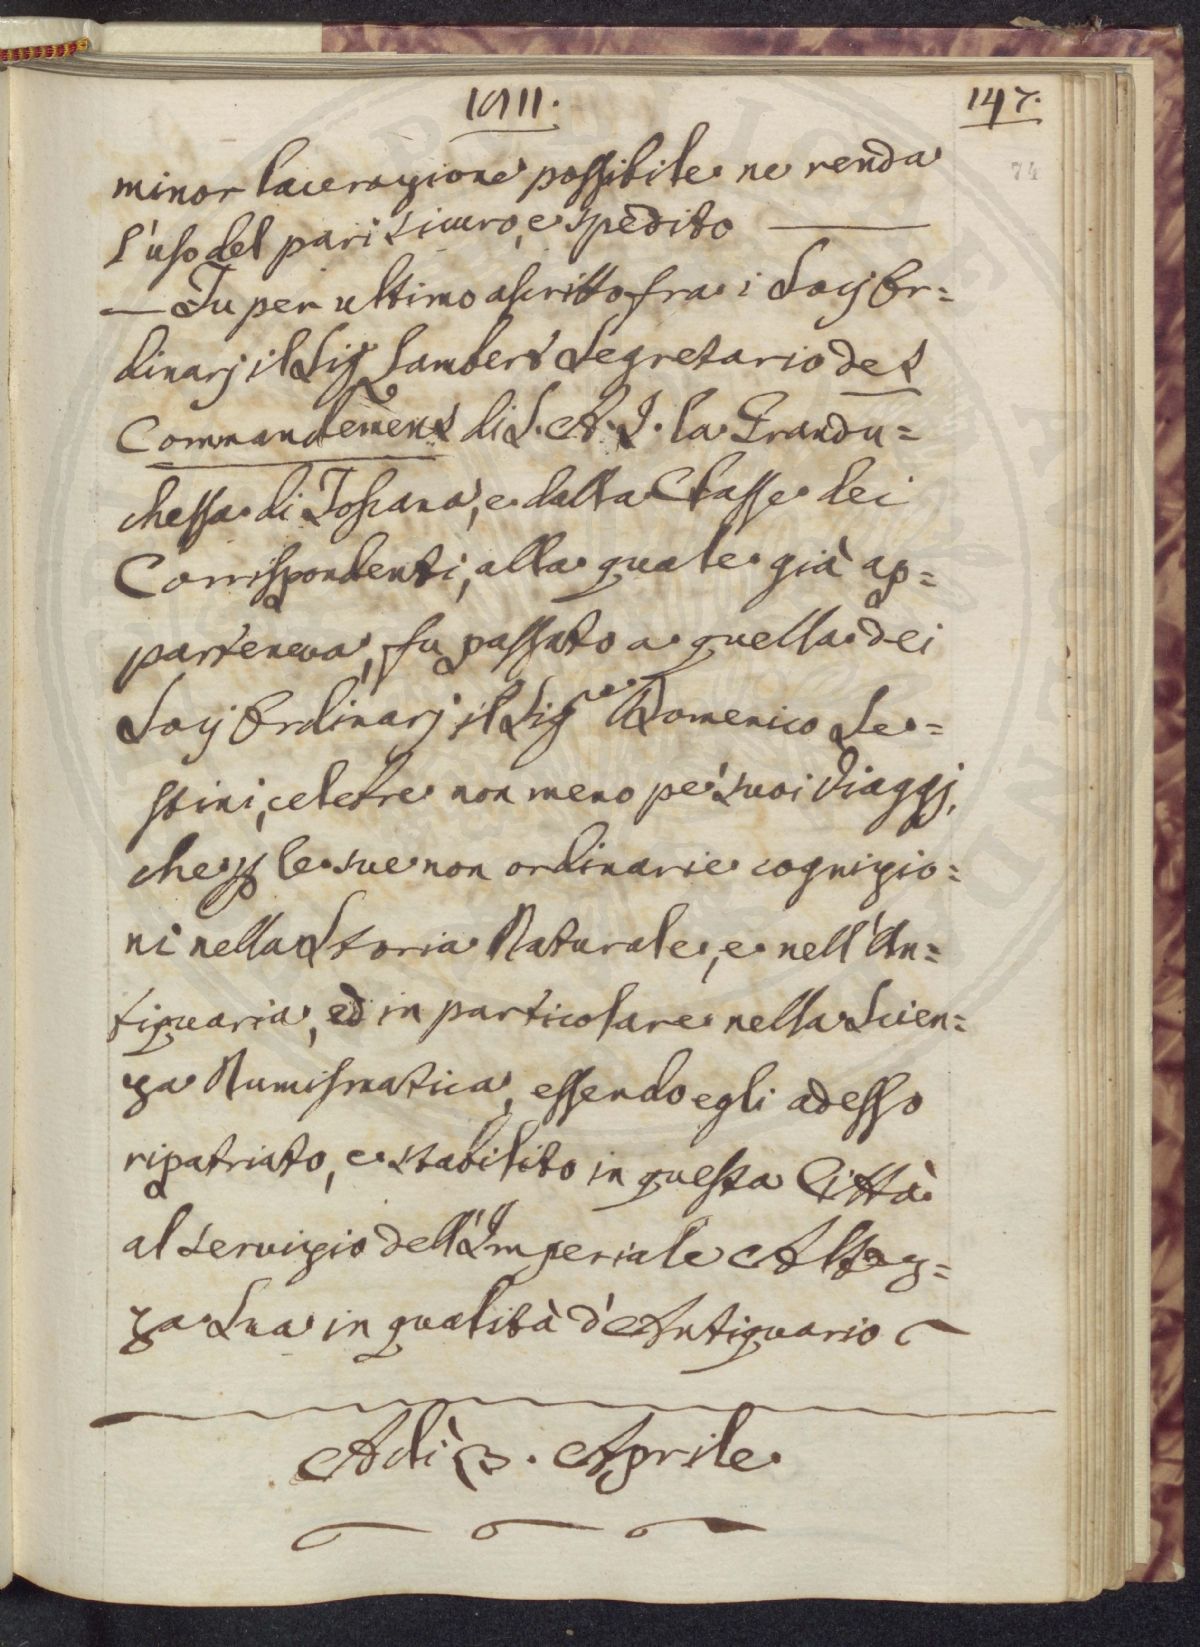 1811.
147.
74
minor lacerazione possibile ne renda
l'uso del pari sicuro, e spedito
— Fu per ultimo ascritto fra i Socj Or=
dinarj il Sig.r Lambert Segretario des
Commandemens di S. A. I. la Grandu=
chessa di Toscana, e dalla Classe dei
Corrispondenti, alla quale già ap=
parteneva, fu passato a quella dei
Socj Ordinarj il Sig.re Domenico Se=
stini, celebre non meno pe' suoi Viaggj,
che p le sue non ordinarie cognizio=
ni nella Storia Naturale, e nell'An=
tiquaria, ed in particolare nella Scien=
za Numismatica, essendo egli adesso
ripatriato, e stabilito in questa Città
al servizio dell'Imperiale Altez=
za Sua in qualità d'Antiquario
Adì 3. Aprile